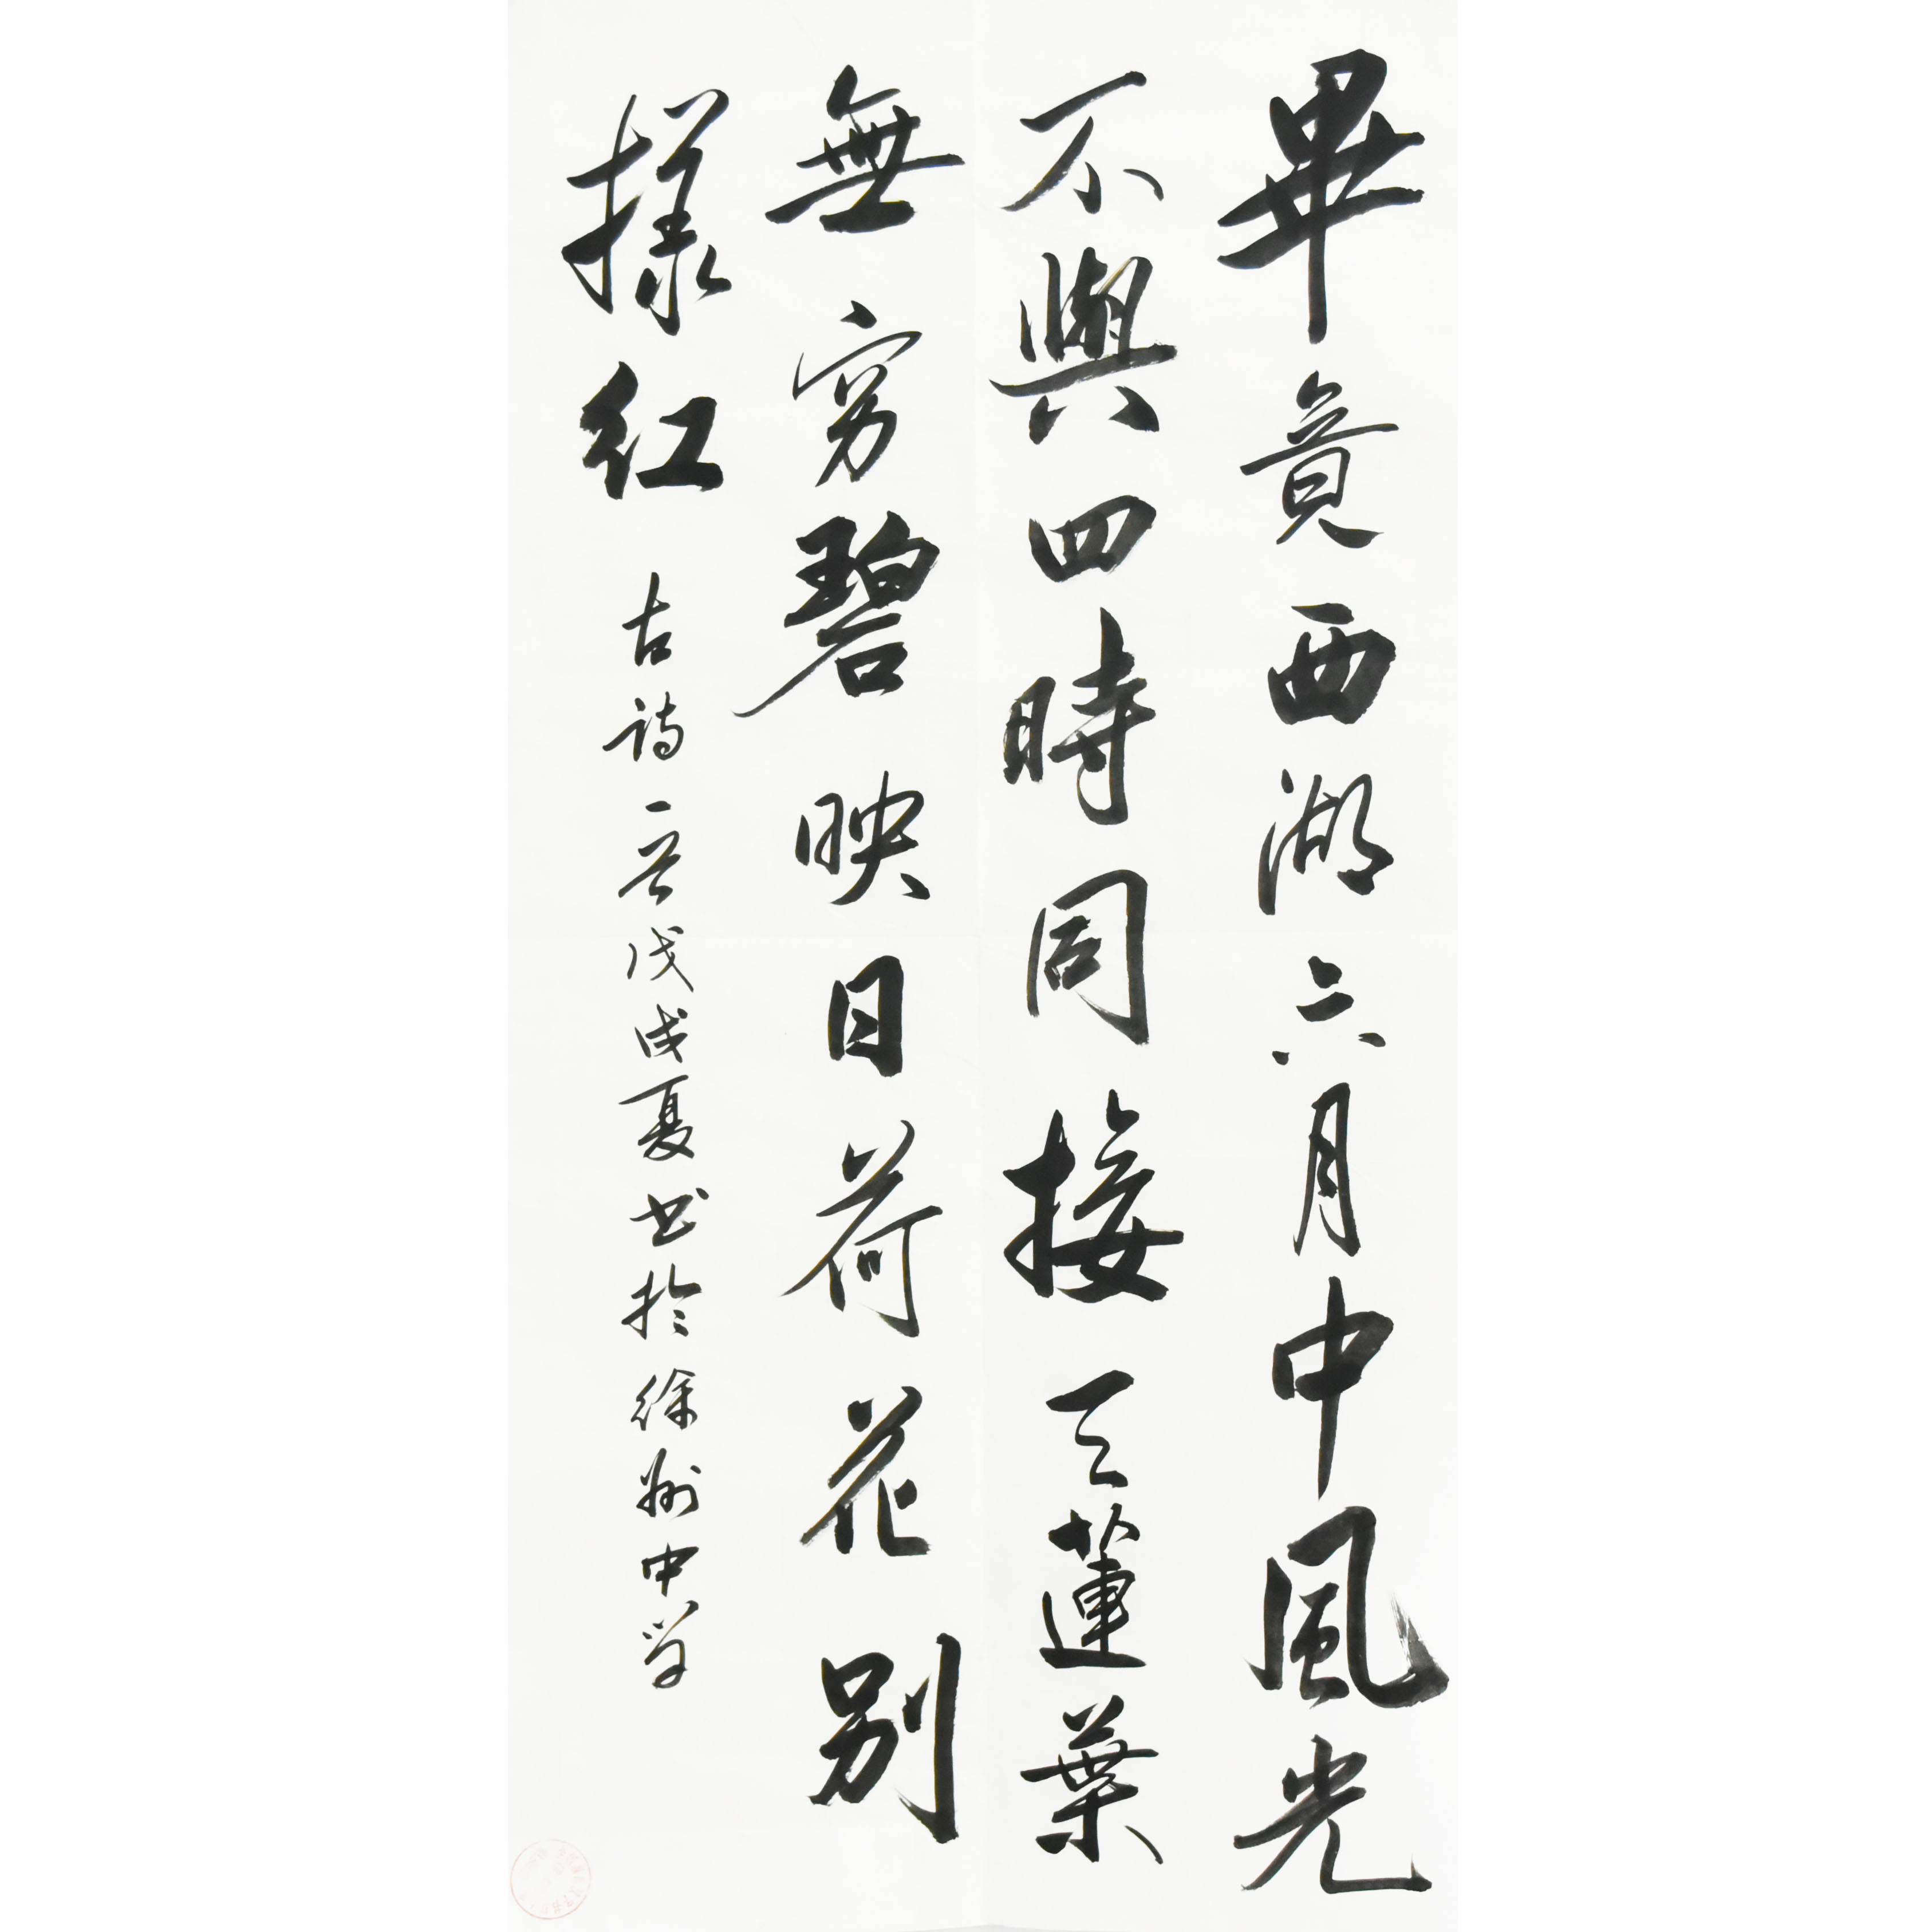 畢竟西湖六月中風光
不與四時同接天蓮葉
無窮碧映日荷花別
樣紅 古詩一首戊戌夏书於徐州中学